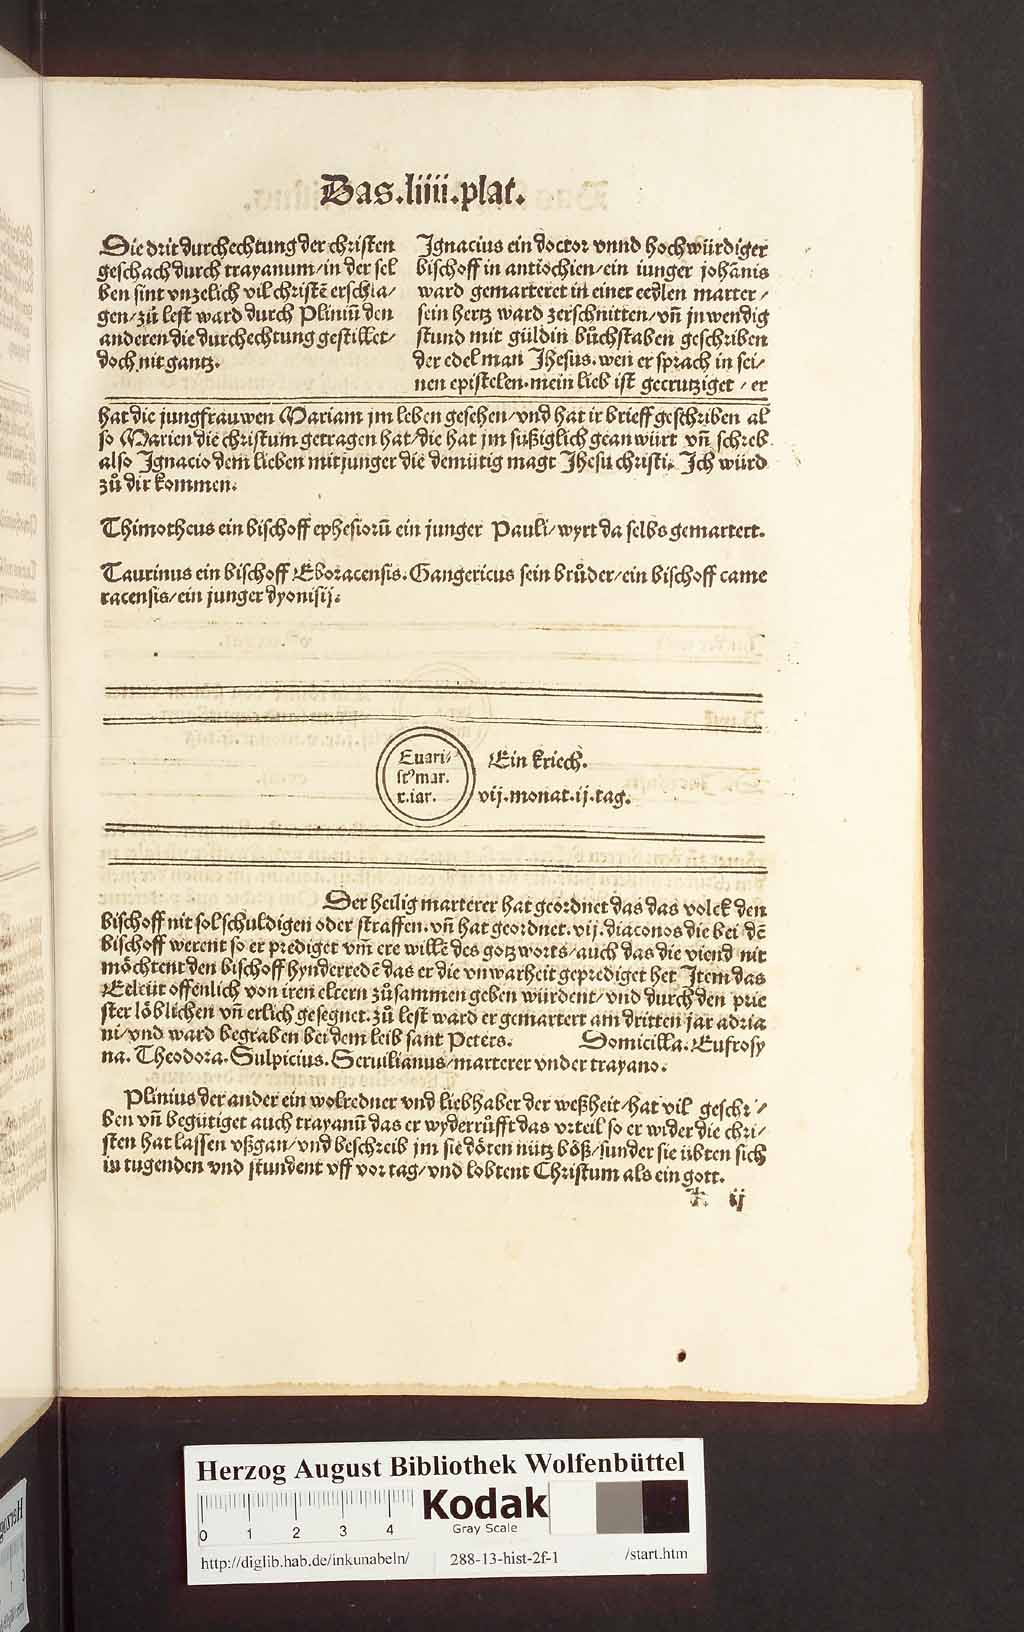 Das.liiii.plat.
Die drit durchechtung der christen
geschach durch trayanum/in der sel
ben sint vnzelich vil christē erschla/
gen/zů lest ward durch Pliniū den
anderen die durchechtung gestillet/
doch nit gantz.
Ignacius ein doctor vnnd hochwürdiger
bischoff in antiochien/ein iunger johānis
ward gemarteret in einer eedlen marter/
sein hertz ward zerschnitten/vn̄ jnwendig
stund mit güldin bůchstaben geschriben
der edel man Jhesus.wen er sprach in sei/
nen epistelen.mein lieb ist gecrutziget/er
hat die jungfrauwen Mariam jm leben gesehen/vnd hat ir brieff geschriben al
so Marien die christum getragen hat/die hat jm süßiglich geanwürt vn̄ schreb
also Ignacio dem lieben mitjunger die demütig magt Jhesu christi. Ich würd
zů dir kommen.
Thimotheus ein bischoff ephesiorū ein junger Pauli/wyrt da selbs gemartert.
Taurinus ein bischoff Eboracensis.Gangericus sein brůder/ein bischoff came
racensis/ein junger dyonisij.
Euari/
stꝰmar.
r.iar.
Ein kriech.
vij.monat.ij.tag.
Der heilig marterer hat geordnet das das volck den
bischoff nit sol schuldigen oder straffen.vn̄ hat geordnet.vij.diaconos die bei dē
bischoff werent so er prediget vm̄ ere willē des gotz worts/auch das die viend nit
möchtent den bischoff hynderredē das er die vnwarheit geprediget het. Item das
Eeleüt offenlich von iren eltern zůsammen geben würdent/vnd durch den prie
ster löblichen vn̄ erlich gesegnet.zů lest ward er gemartert am dritten jar adria
ni/vnd ward begraben bei dem leib sant Peters. Domicilla.Eufrosy
na.Theodora.Sulpicius.Seruilianus/marterer vnder trayano.
Plinius der ander ein wolredner vnd liebhaber der weßheit/hat vil geschri/
ben vn̄ begütiget auch trayanū das er wyderrüfft das vrteil so er wider die chri/
sten hat lassen vßgan/vnd beschreib jm sie döten nütz böß/sunder sie übten sich
in tugenden vnd stundent vff vor tag/vnd lobtent Christum als ein gott.
ij
Herzog August Bibliothek Wolfenbüttel
0 1 2 3 4
Kodak
Gray Scale
http://diglib.hab.de/inkunabeln/ 288-13-hist-2f-1 /start.htm